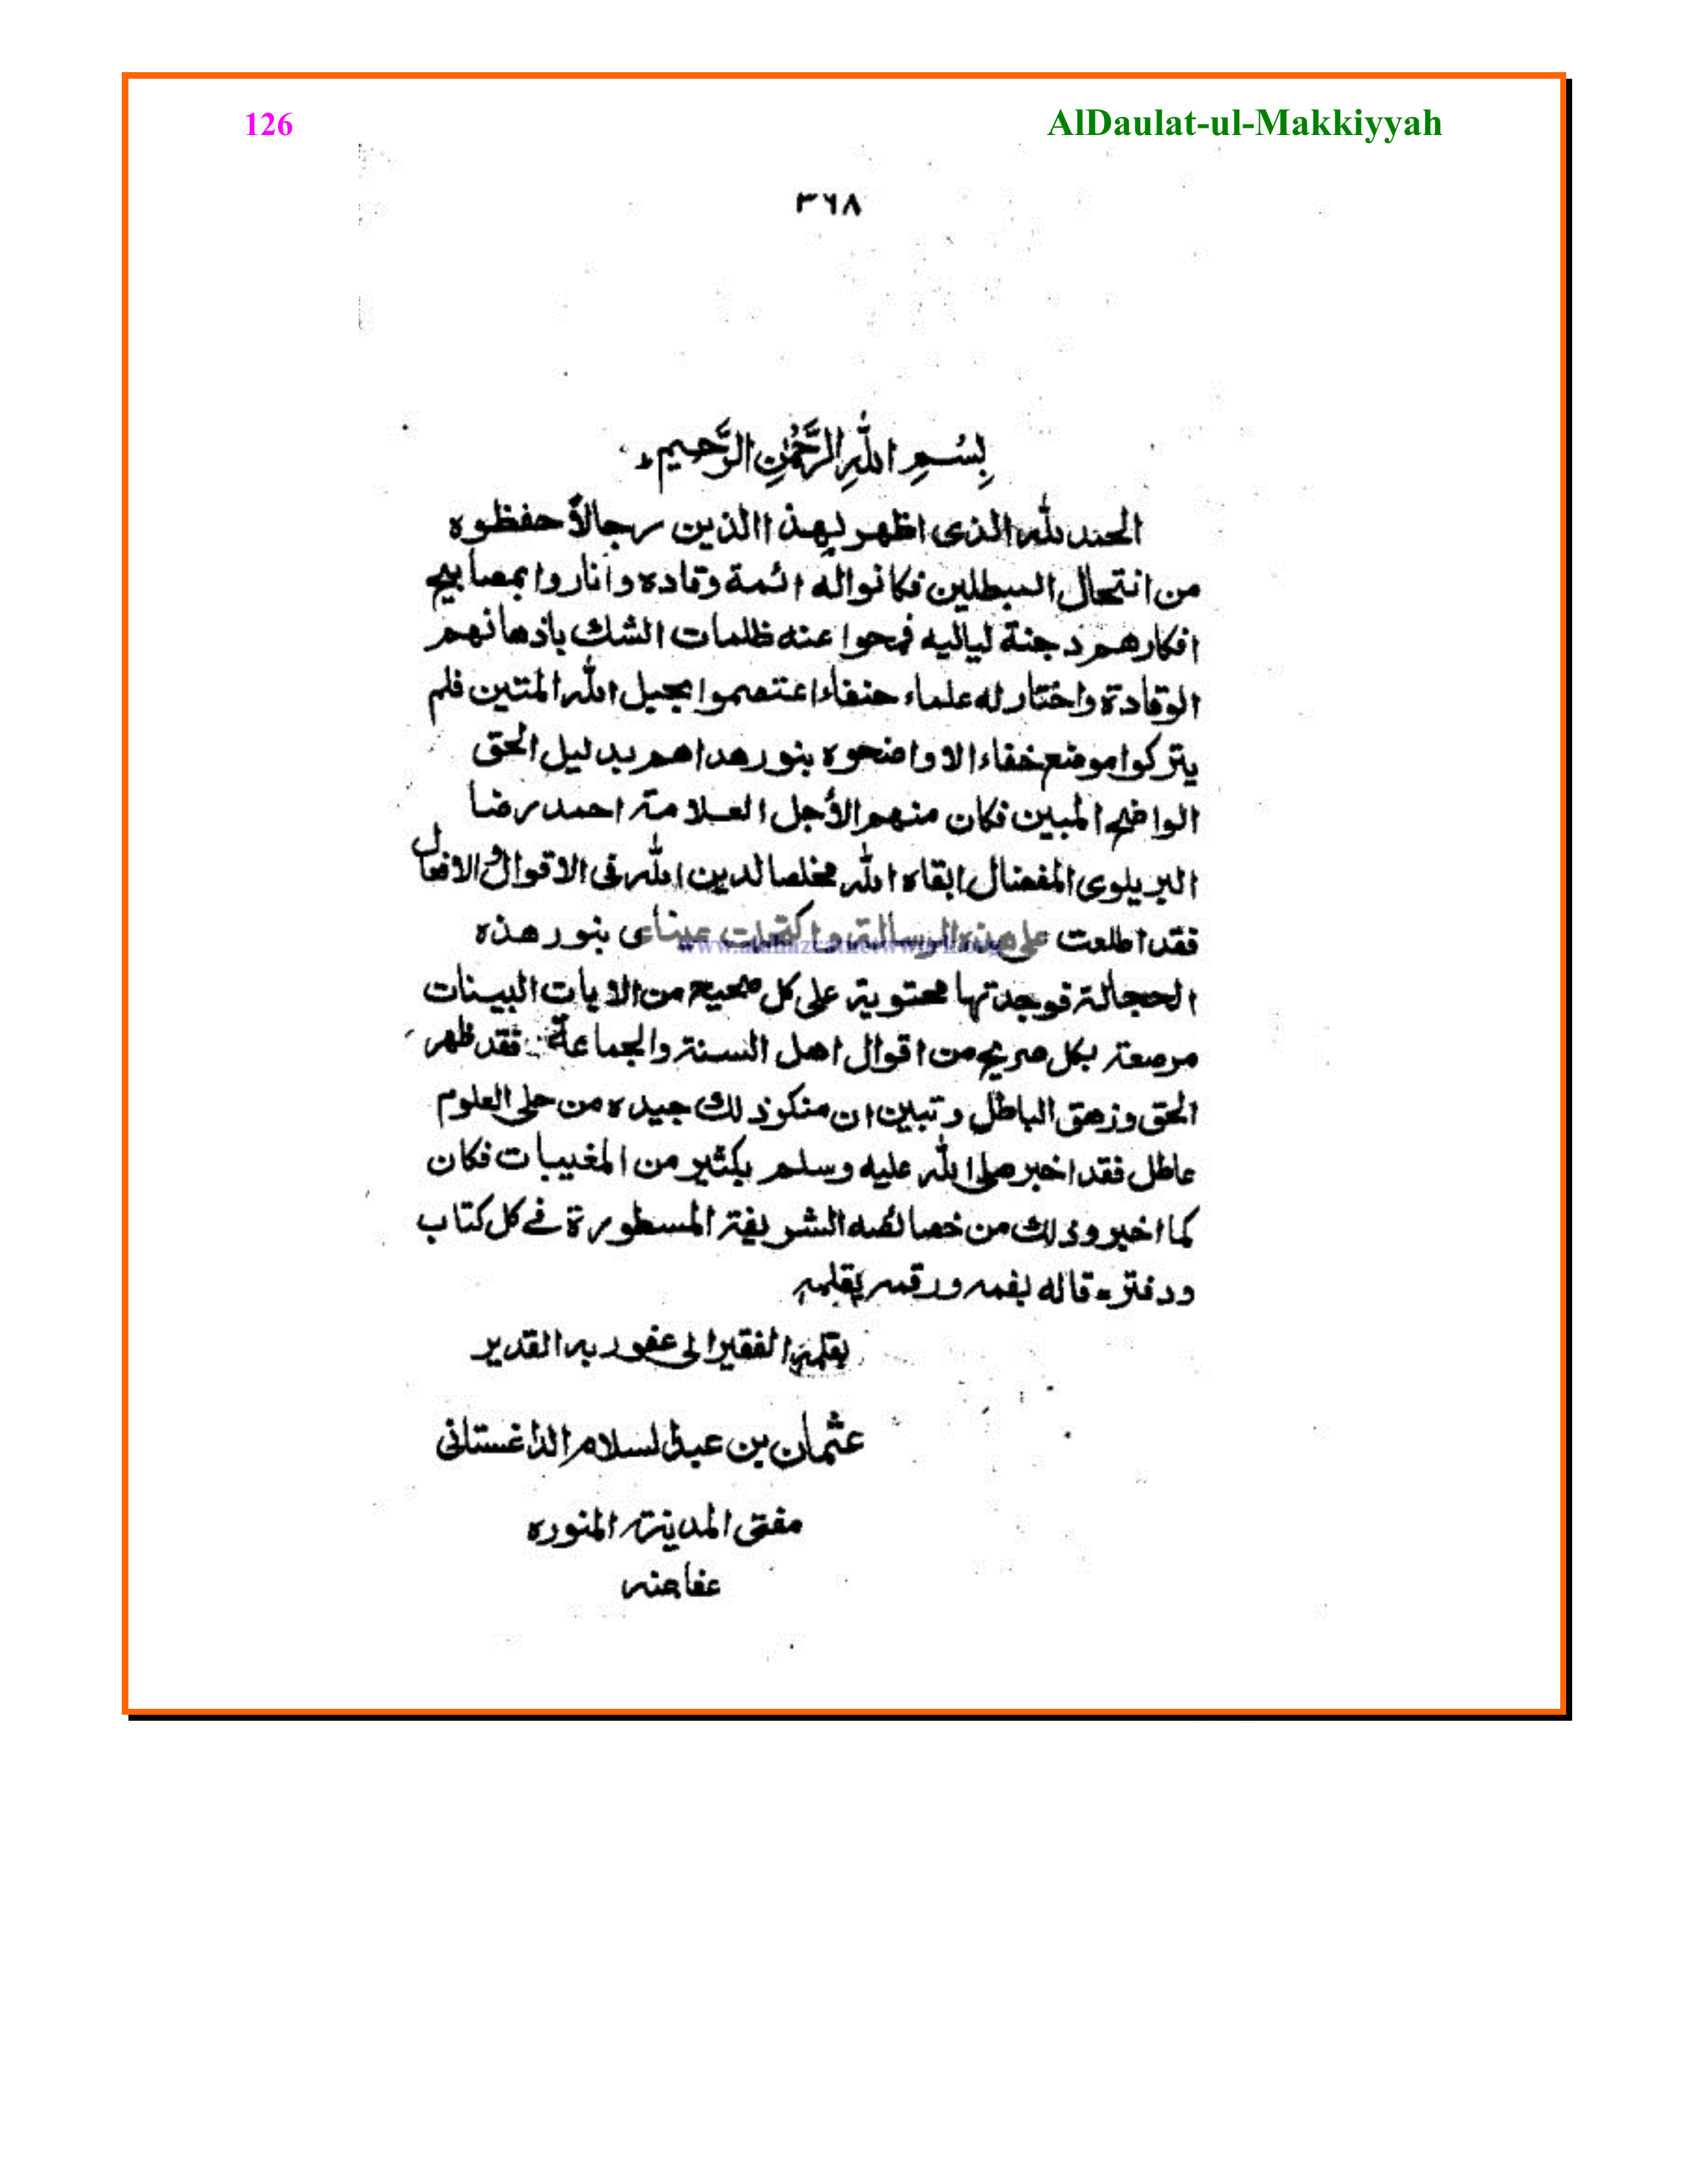 126 AlDaulat-ul-Makkiyyah
٣٦٨
بِسْمِ اللهِ الرَّحْمٰنِ الرَّحِيم ط
الحمد لله الذى اظهر لهذا الذين رجالاً حفظوه
من انتحال المبطلين فكانوا له ائمة وقاده وأناروا بمصابيح
افكارهم دجنة لياليه فمحوا عنه ظلمات الشك باذهانهم
الوقادة واختار له علماء حنفاء اعتصموا بحبل الله المتين فلم
يتركوا موضع خفاء الا واضحوه بنور هداهم بدليل الحق
الواضح المبين فكان منهم الأجل العلامة احمد رضا
البريلوى المفضال ابقاه الله مخلصا لدين الله فى الاقوال والافعال
فقد اطلعت على هذه الرسالة واكتحلت عيناى بنور هذه
العجالة فوجدتها محتوية على كل صحيح من الايات البينات
مرصعة بكل صريح من اقوال اهل السنة والجماعة فقد ظهر
الحق وزهق الباطل وتبين ان منكر ذلك جيده من حلى العلوم
عاطل فقد اخبر صلى الله عليه وسلم بكثير من المغيبات فكان
كما اخبر وذلك من خصائصه الشريفة المسطورة فى كل كتاب
ودفتر - قاله بفمه ورقمه بقلمه
بقلمه الفقير الى عفو ربه القدير
عثمان بن عبد السلام الداغستانى
مفتى المدينة المنوره
عفا عنه
www.alahazratnetwork.org